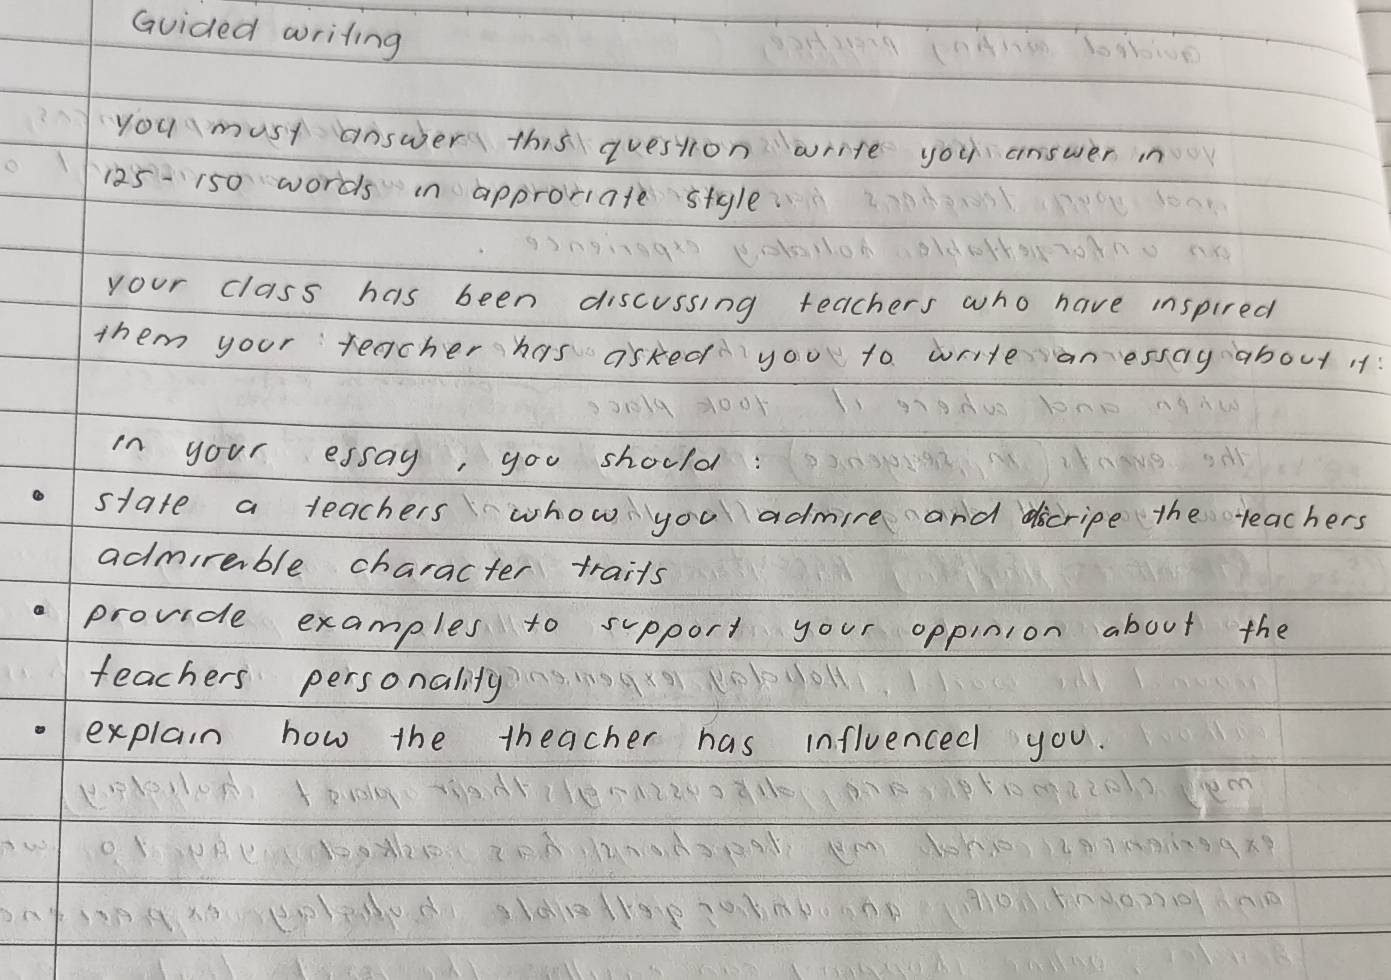 Guided writing
you must answer this question write you answer in
125 - 150 words in approriate style.
your class has been discussing teachers who have inspired
them your teacher has asked you to write an essay about it:
in your essay, you should :
• state a teachers whow you admire and discripe the teachers
admireable character traits
• provide examples to support your oppinion about the
teachers personality
• explain how the theacher has influenced you.